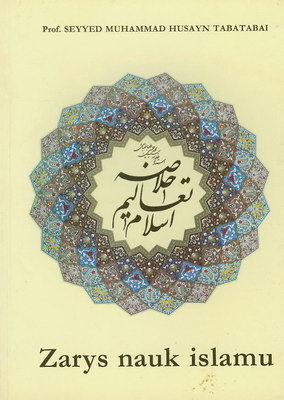 Prof. SEYYED MUHAMMAD HUSAYN TABATABAI
خلاصه
تعالیم
اسلام
Zarys nauk islamu